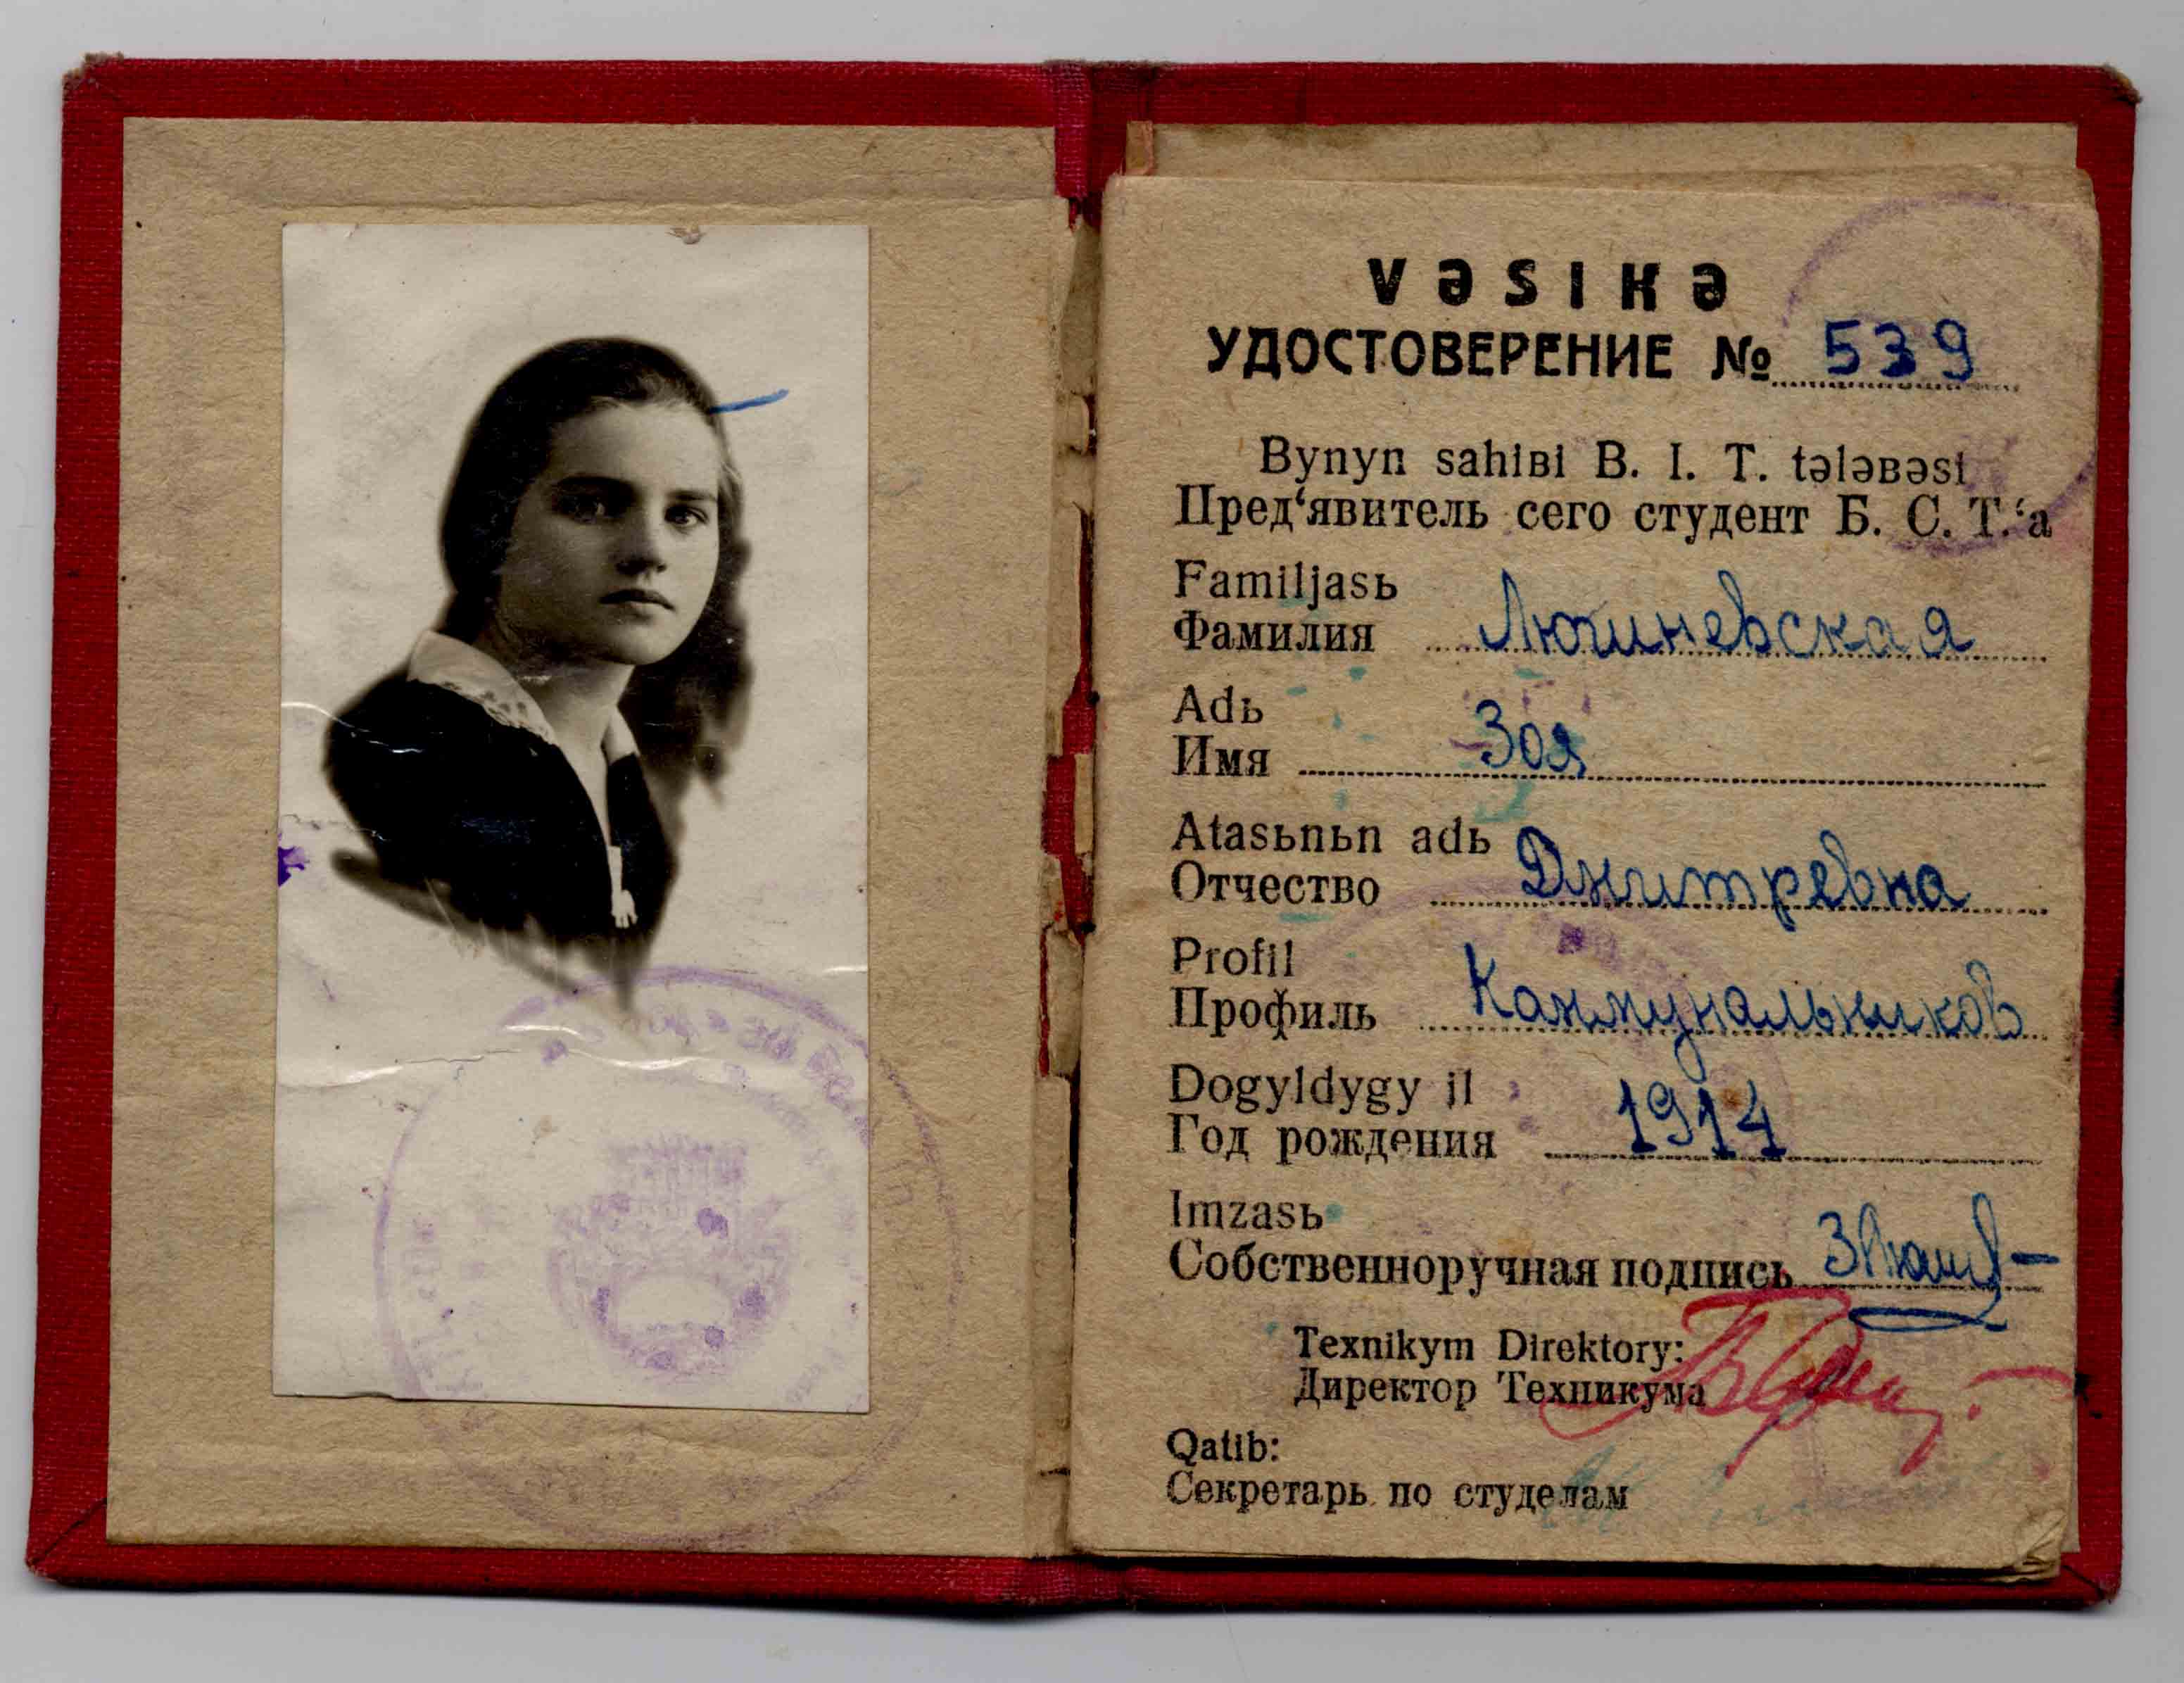 VƏSIKƏ
УДОСТОВЕРЕНИЕ № 539
Bynyn sahiʙi B. I. T. tələʙəsi
Пред‘явитель сего студент Б. С. Т.‘а
Familjasь
Фамилия Лючиневская
Adь
Имя Зоя
Atasьnьn adь
Отчество Дмитревна
Profil
Профиль Коммунальников
Dogyldygy jl
Год рождения 1914
Imzasь
Собственноручная подпись
Texnikym Direktory:
Директор Техникума
Qatib:
Секретарь по студелам